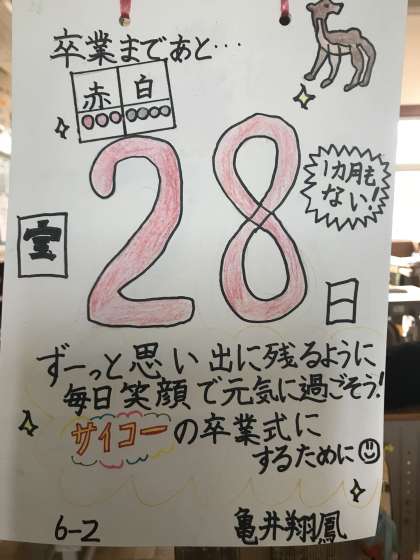 卒業まであと…
赤白
1カ月もない!
28
日
ずーっと思い出に残るように
毎日笑顔で元気に過ごそう!
サイコーの卒業式に
するために
6-2 亀井翔鳳